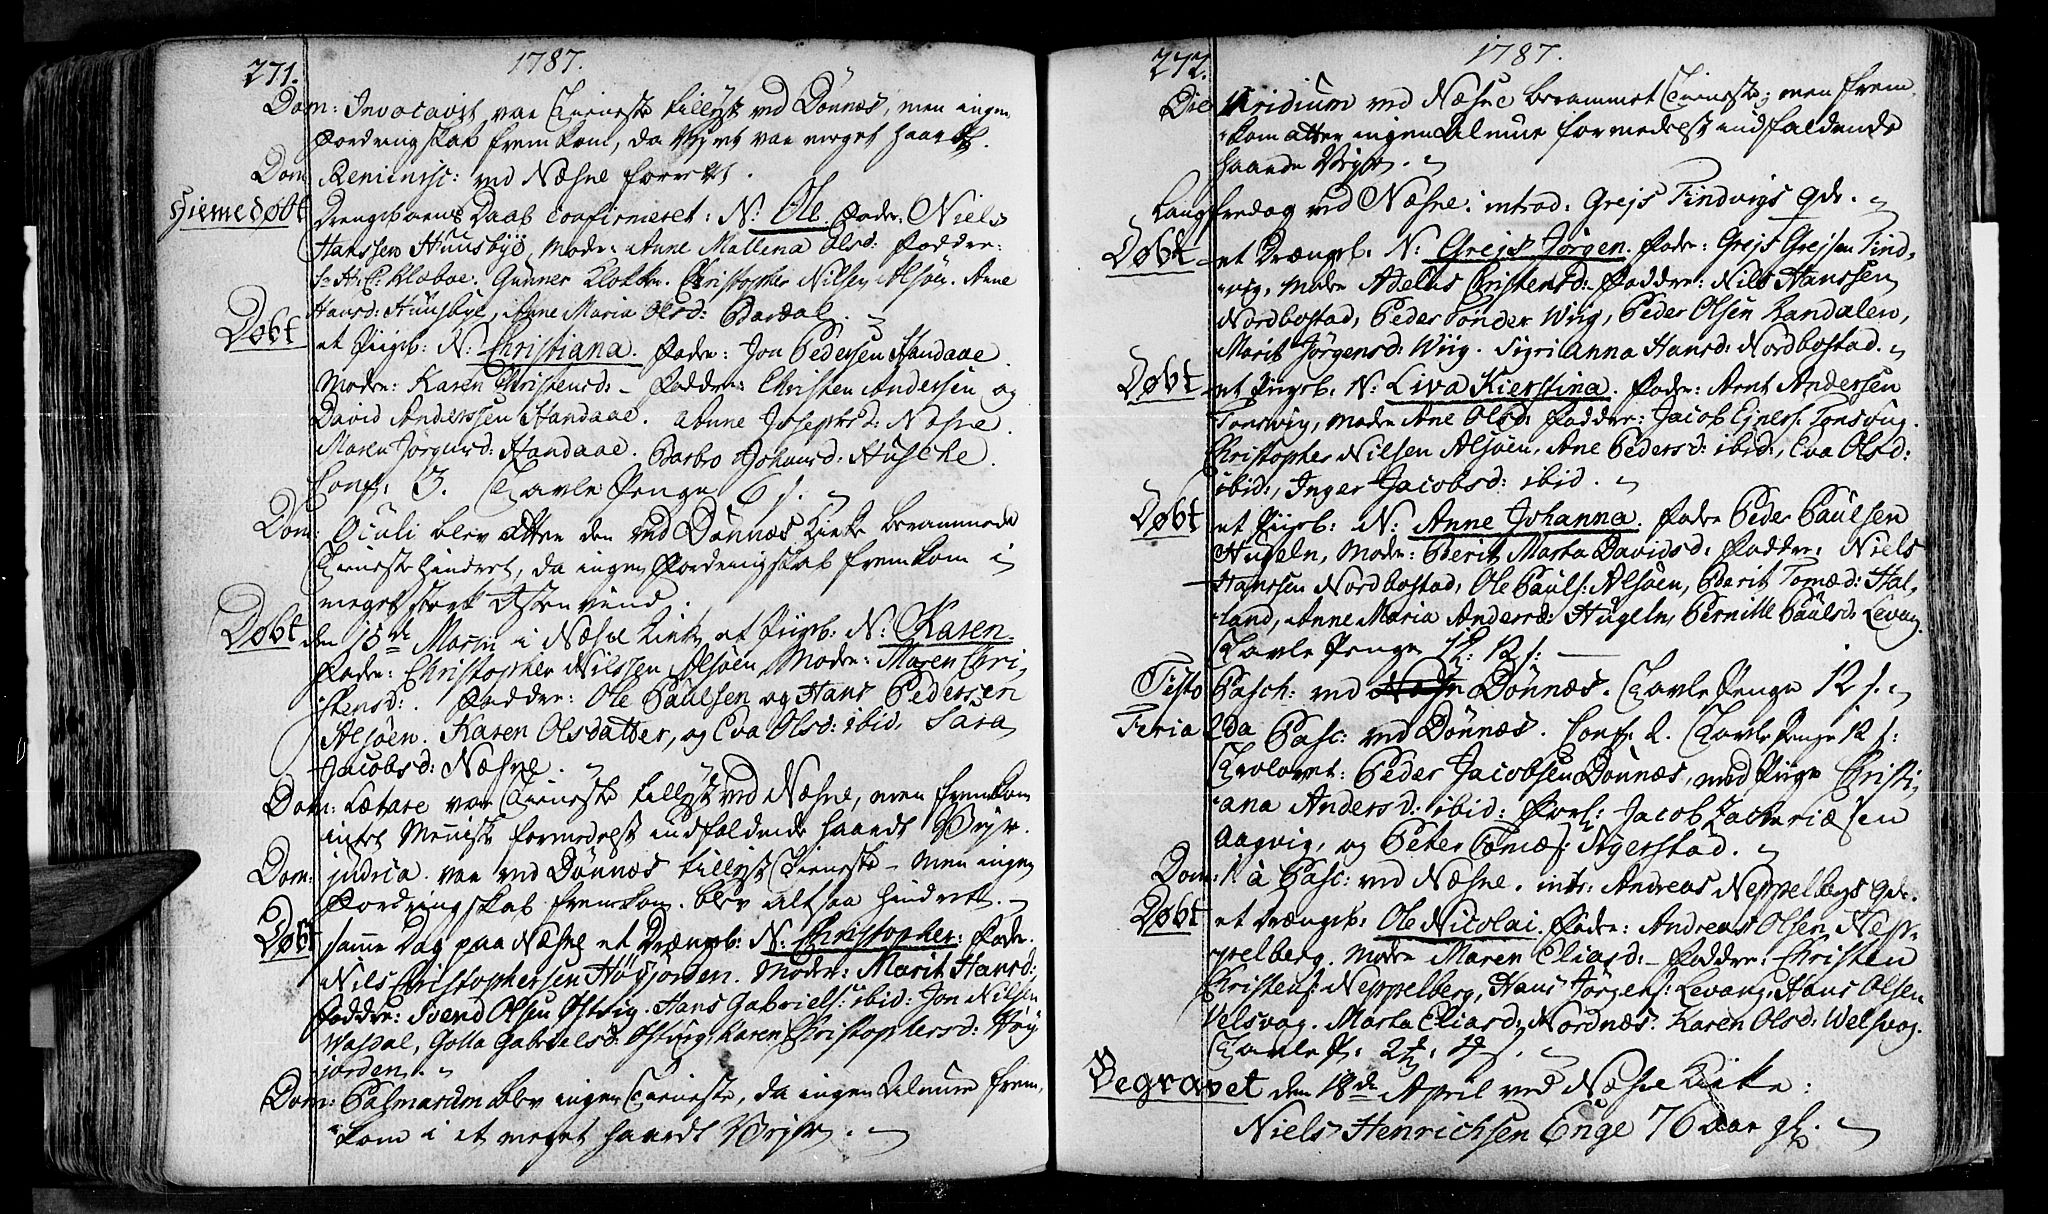 271. 1787.
Dom: Invocavit var Tieneste tillyst ved Dönnæs, men ingen
Fordringskab fremkom, da Vejret var meget haardt.
Dom Reminisc: ved Næsne forrett.
Hiemedøbt Drengebarns Daab confirmeret: N: Ole. Fader: Niels
Hanssen Huusbye, Moder: Anne Mallena Olsd: Faddre:
Hr H: C: Klæboe. Gunner Klokker. Christopher Nilsen Alsöen. Anne
Hansd: Huusbye, Anne Maria Olsd: Bardal.
Døbt et Pigeb: N: Christiana. Fader: Jon Pedersen Handaae.
Moder: Karen Christensd: - Faddre: Christen Andersen og
David Anderssen Handaae. Anne Josephsd: Næsne.
Maren Jörgensd: Handaae. Barbro Johansd: Husebye.
Conf: 3. Tavle Penge 6 s.
Dom: Oculi blev atter den ved Dönnæs Kirke berammede
Tieneste hindret, da ingen Fordringskab fremkom i
meget stærk Østenvind.
Døbt den 15de Martii i Næsne Kirke et Pigeb: N: Karen.
Fader: Christopher Nilssen Alsöen, Moder: Maren Chri,
stensd: Faddre: Ole Paulsen og Hans Pedersen
Alsöen. Karen Olsdatter, og Eva Olsd: ibid, Sara
Jacobsd: Næsne.
Dom: Lætare var Tieneste tillyst ved Næsne, men fremkom
intet Menniske formedelst indfaldende haardt Vejr.
Dom: judica var ved Dönnæs tillyst Tieneste - men ingen
Fordringskab fremkom. blev altsaa hindret.
Døbt samme Dag paa Næsne et Drængeb: N: Christopher: Fader.
Nils Christophersen Höyjorden. Moder: Marit Hansd:
Faddre: Svend Olsen Østvig. Hans Gabriels: ibid: Jon Nilsen
Vaspal, Golla Gabrielsd: Östvig, Karen Christophersd: Höy
jorden.
Dom: Palmarum blev ingen Tieneste, da ingen Almue frem,
kom i et meget haardt Vejr.
272. 1787.
Die Viridium ved Næsne berammet Tieneste; men frem
kom atter ingen Almue formedelst indfaldende
haarde Vejr.
Langfredag ved Næsne. introd: Grejs Tindvigs qde.
Døbt et Drængeb: N: Grejs Jörgen. Fader: Grejs Grejsen Tind,
vig, Moder Adelus Christensd: Faddre: Nils Hanssen
Nordbostad, Peder Tønder Wiig, Peder Olsen Randalen,
Marit Jörgensd: Wiig. Sigri Anna Hansd: Nordbostad.
Døbt et Pigeb. N: Liva Kierstina. Fader: Arnt Andersen
Tonsvig, Moder Ane Olsd: Faddre: Jacob Ejners: Tonsvig.
Christopher Nilsen Alsöen, Ane Pedersd: ibid:, Eva Olsd:
ibid:, Inger Jacobsd: ibid.
Døbt et Pigeb: N: Anne Johanna. Fader Peder Paulsen
Hugeln, Moder: Berit Marta Davidsd: Faddre: Niels
Hanssen Nordbostad, Ole Pauls: Alsöen, Barit Tomæd: Hal,
land, Anne Maria Andersd: Hugeln, Pernille Paulsd: Levang.
Tavle Penge 12 s:
Festo Pasch: ved Næsn Dönnæs. Tavle Penge 12 s.
Feria 2da Pasc: ved Dönnæs. Conf: 2. Tavle Penge 12 s:
Trolovet: Peder Jacobsen Dönnæs, med Pige Christi,
ana Andersd: ibid: Forl: Jacob Zachariæsen
Aagvig, og Peter Tomæs: Sigerstad.
Dom: 1 à Pasc: ved Næsne. intr: Andreas Neppelbergs qde.
Døbt et Drængeb: Ole Nicolai. Fader: Andreas Olsen Nep,
pelberg. Moder Maren Eliasd: - Faddre: Christen
Christens: Neppelberg, Hans Jörgens: Levang, Hans Olsen
Velsvag. Marta Eliasd: Nordnæs. Karen Olsd: Welsvag.
Begravet den 18de April ved Næsne Kirke:
Niels Henrichsen Enge 76 aar gl.